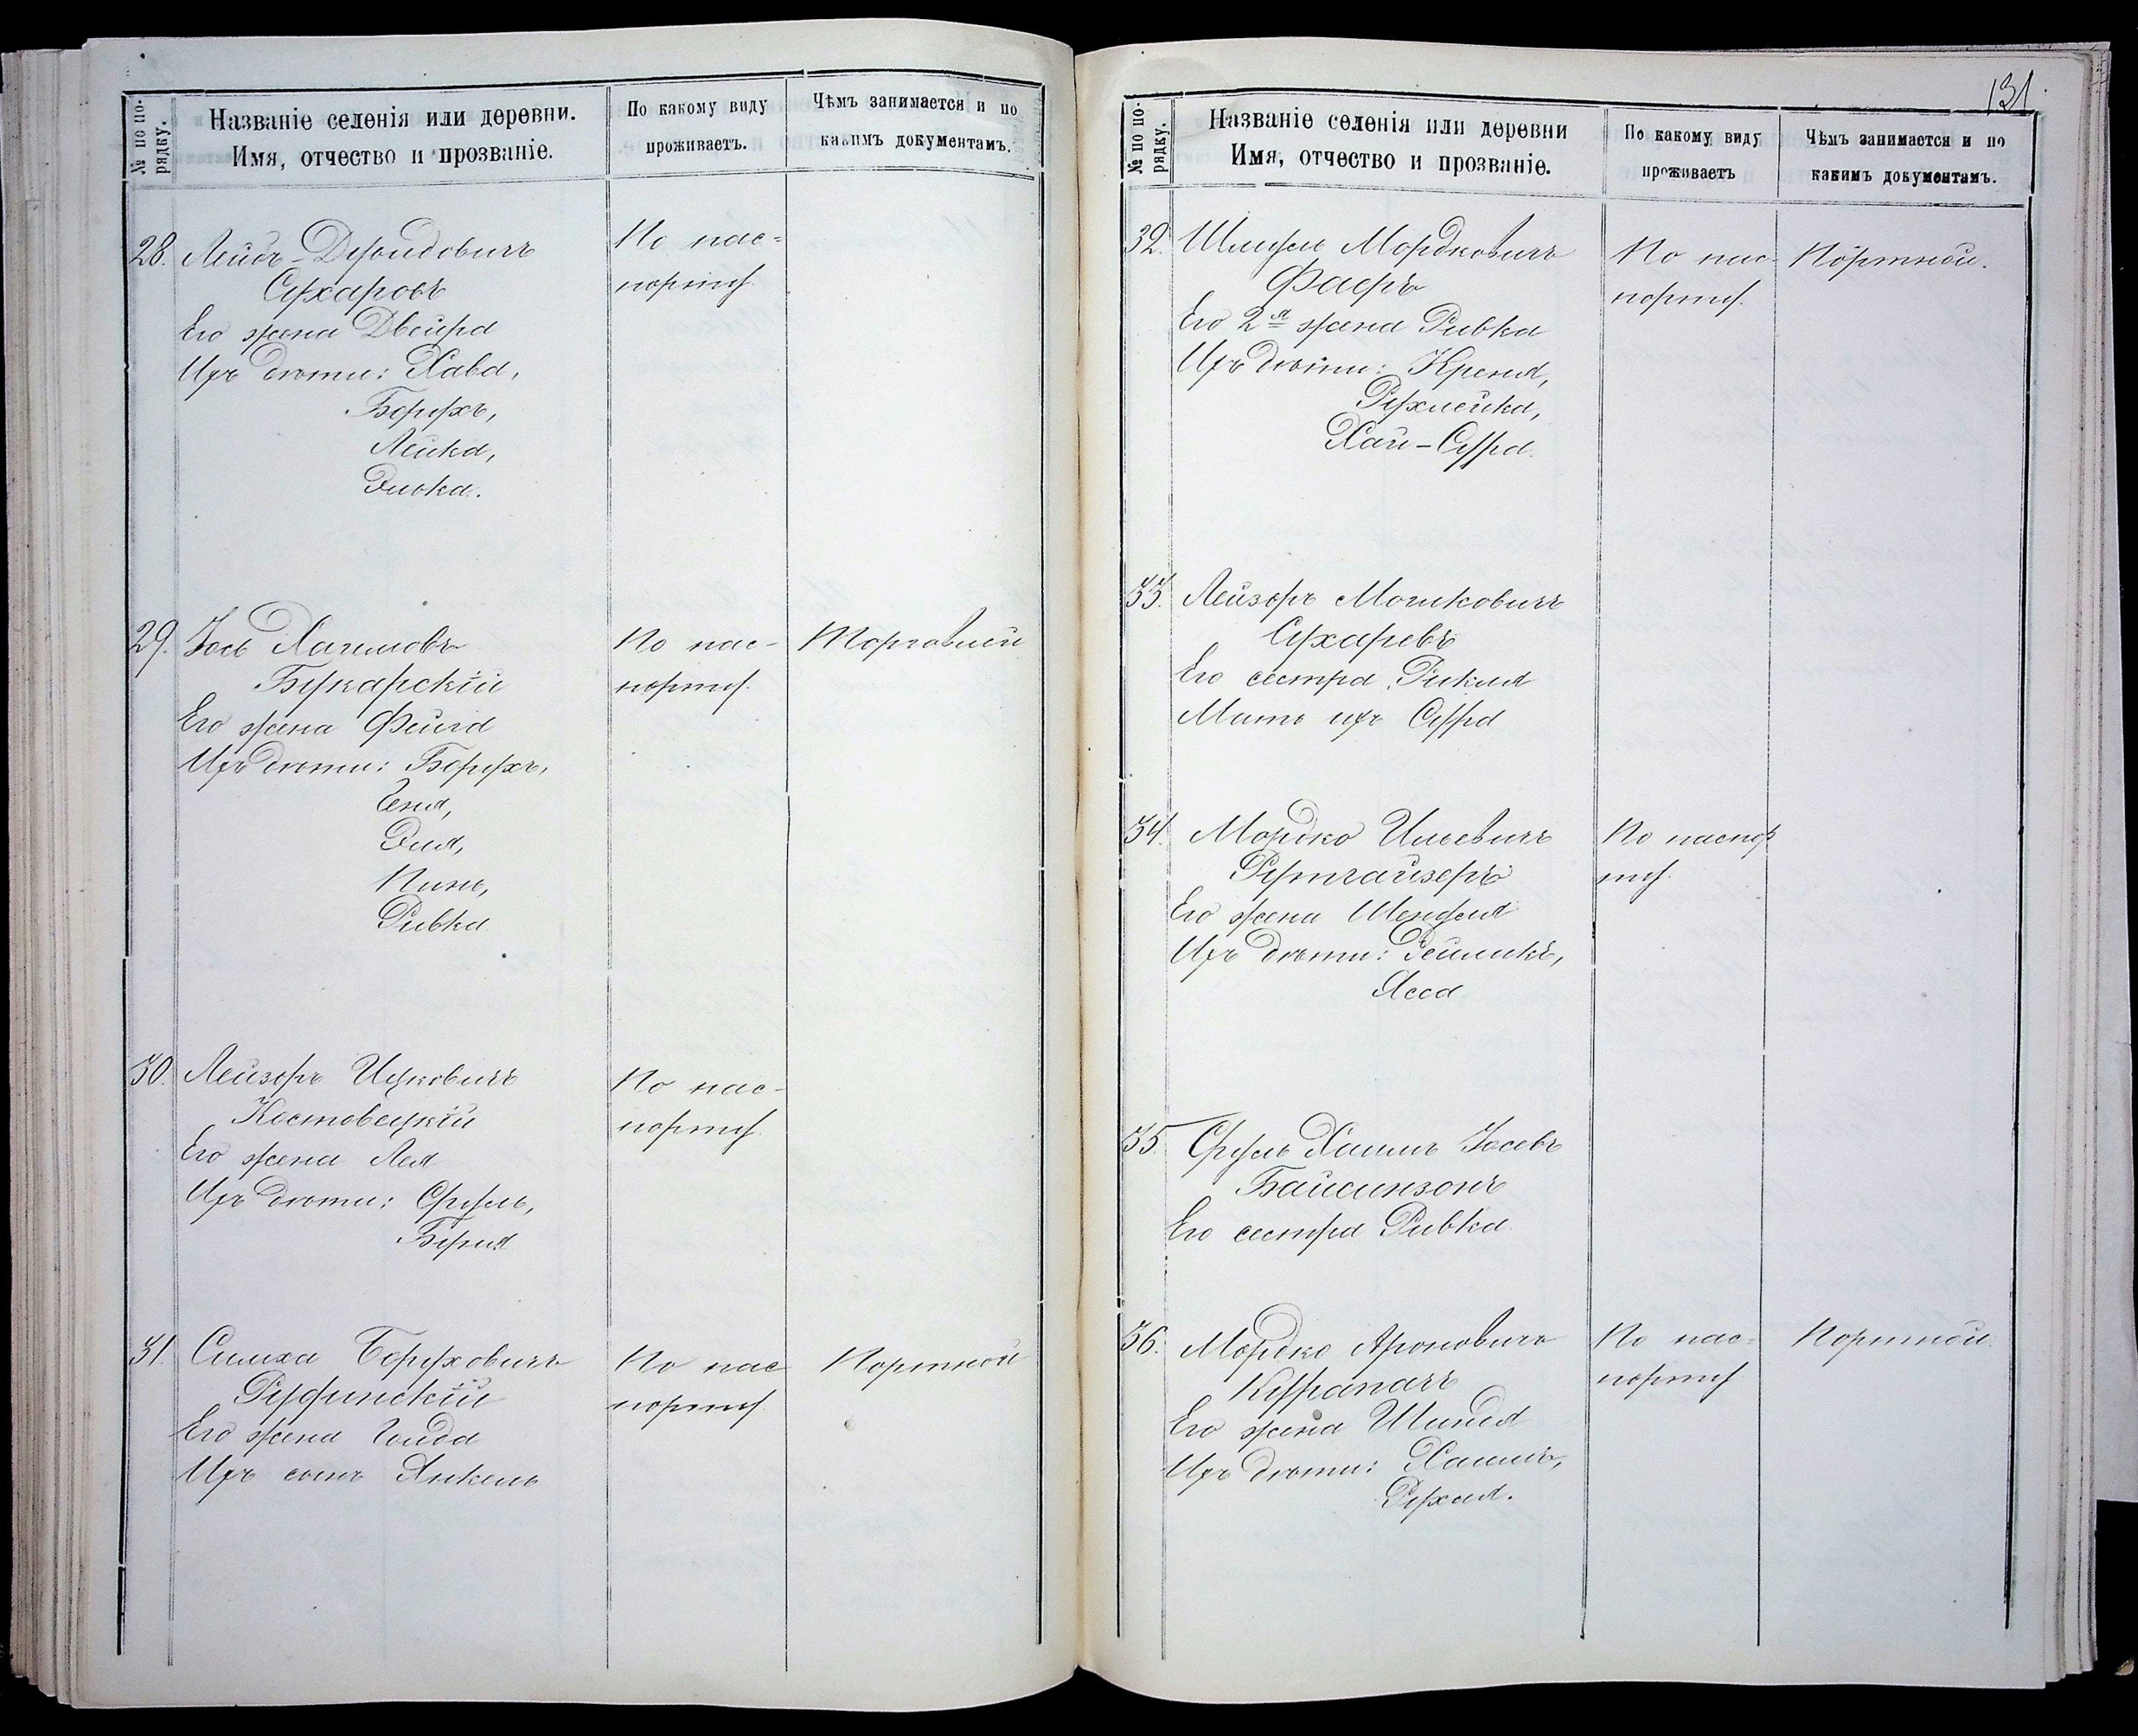 № по по-
рядку.
Названіе селенія или деревни.
Имя, отчество и прозваніе.
По какому виду
проживаетъ.
Чѣмъ занимается и по
какимъ документамъ.
28. Лейбъ-Дувидовичъ
Сухаровъ
Его жена Двейра
Ихъ дѣти: Хава,
Борухъ,
Лейка,
Ривка.
По пас-
порту.
29. Іось Хаимовъ
Букарскій
Его жена Фейга
Ихъ дѣти: Борухъ,
Геня,
Пинь,
Ривка
По пас-
порту.
Торговлей
30. Лейзоръ Ицковичъ
Костовецкій
Его жена Лея
Ихъ дѣти: Сруль,
По пас-
порту.
31. Симха Боруховичъ
Его жена Голда
Ихъ сынъ Янкель
По пас
порту
Портной
131.
№ по по-
рядку.
Названіе селенія или деревни
Имя, отчество и прозваніе.
По какому виду
проживаетъ
Чѣмъ занимается и по
какимъ документамъ.
32. Шмуль Мордковичъ
Фаеръ
Его 2я жена Ривка
Ихъ дѣти: Креня,
Рухлейка,
Хай-Сура.
По пас-
порту.
Портной.
33. Лейзоръ Мошковичъ
Сухаревъ
Его сестра Рикля
Мать ихъ Сура
34. Мордко Ильевичъ
Рутгайзеръ
Его жена Шендля
Ихъ дѣти: Зейликъ,
Хася
По паспор
ту.
35. Сруль Хаимъ Іосевъ
Байсинзонъ
Его сестра Ривка.
36. Мордко Ароновичъ
Его жена Шиндля
Ихъ дѣти: Хаимъ,
Рухля.
По пас-
порту
Портной.